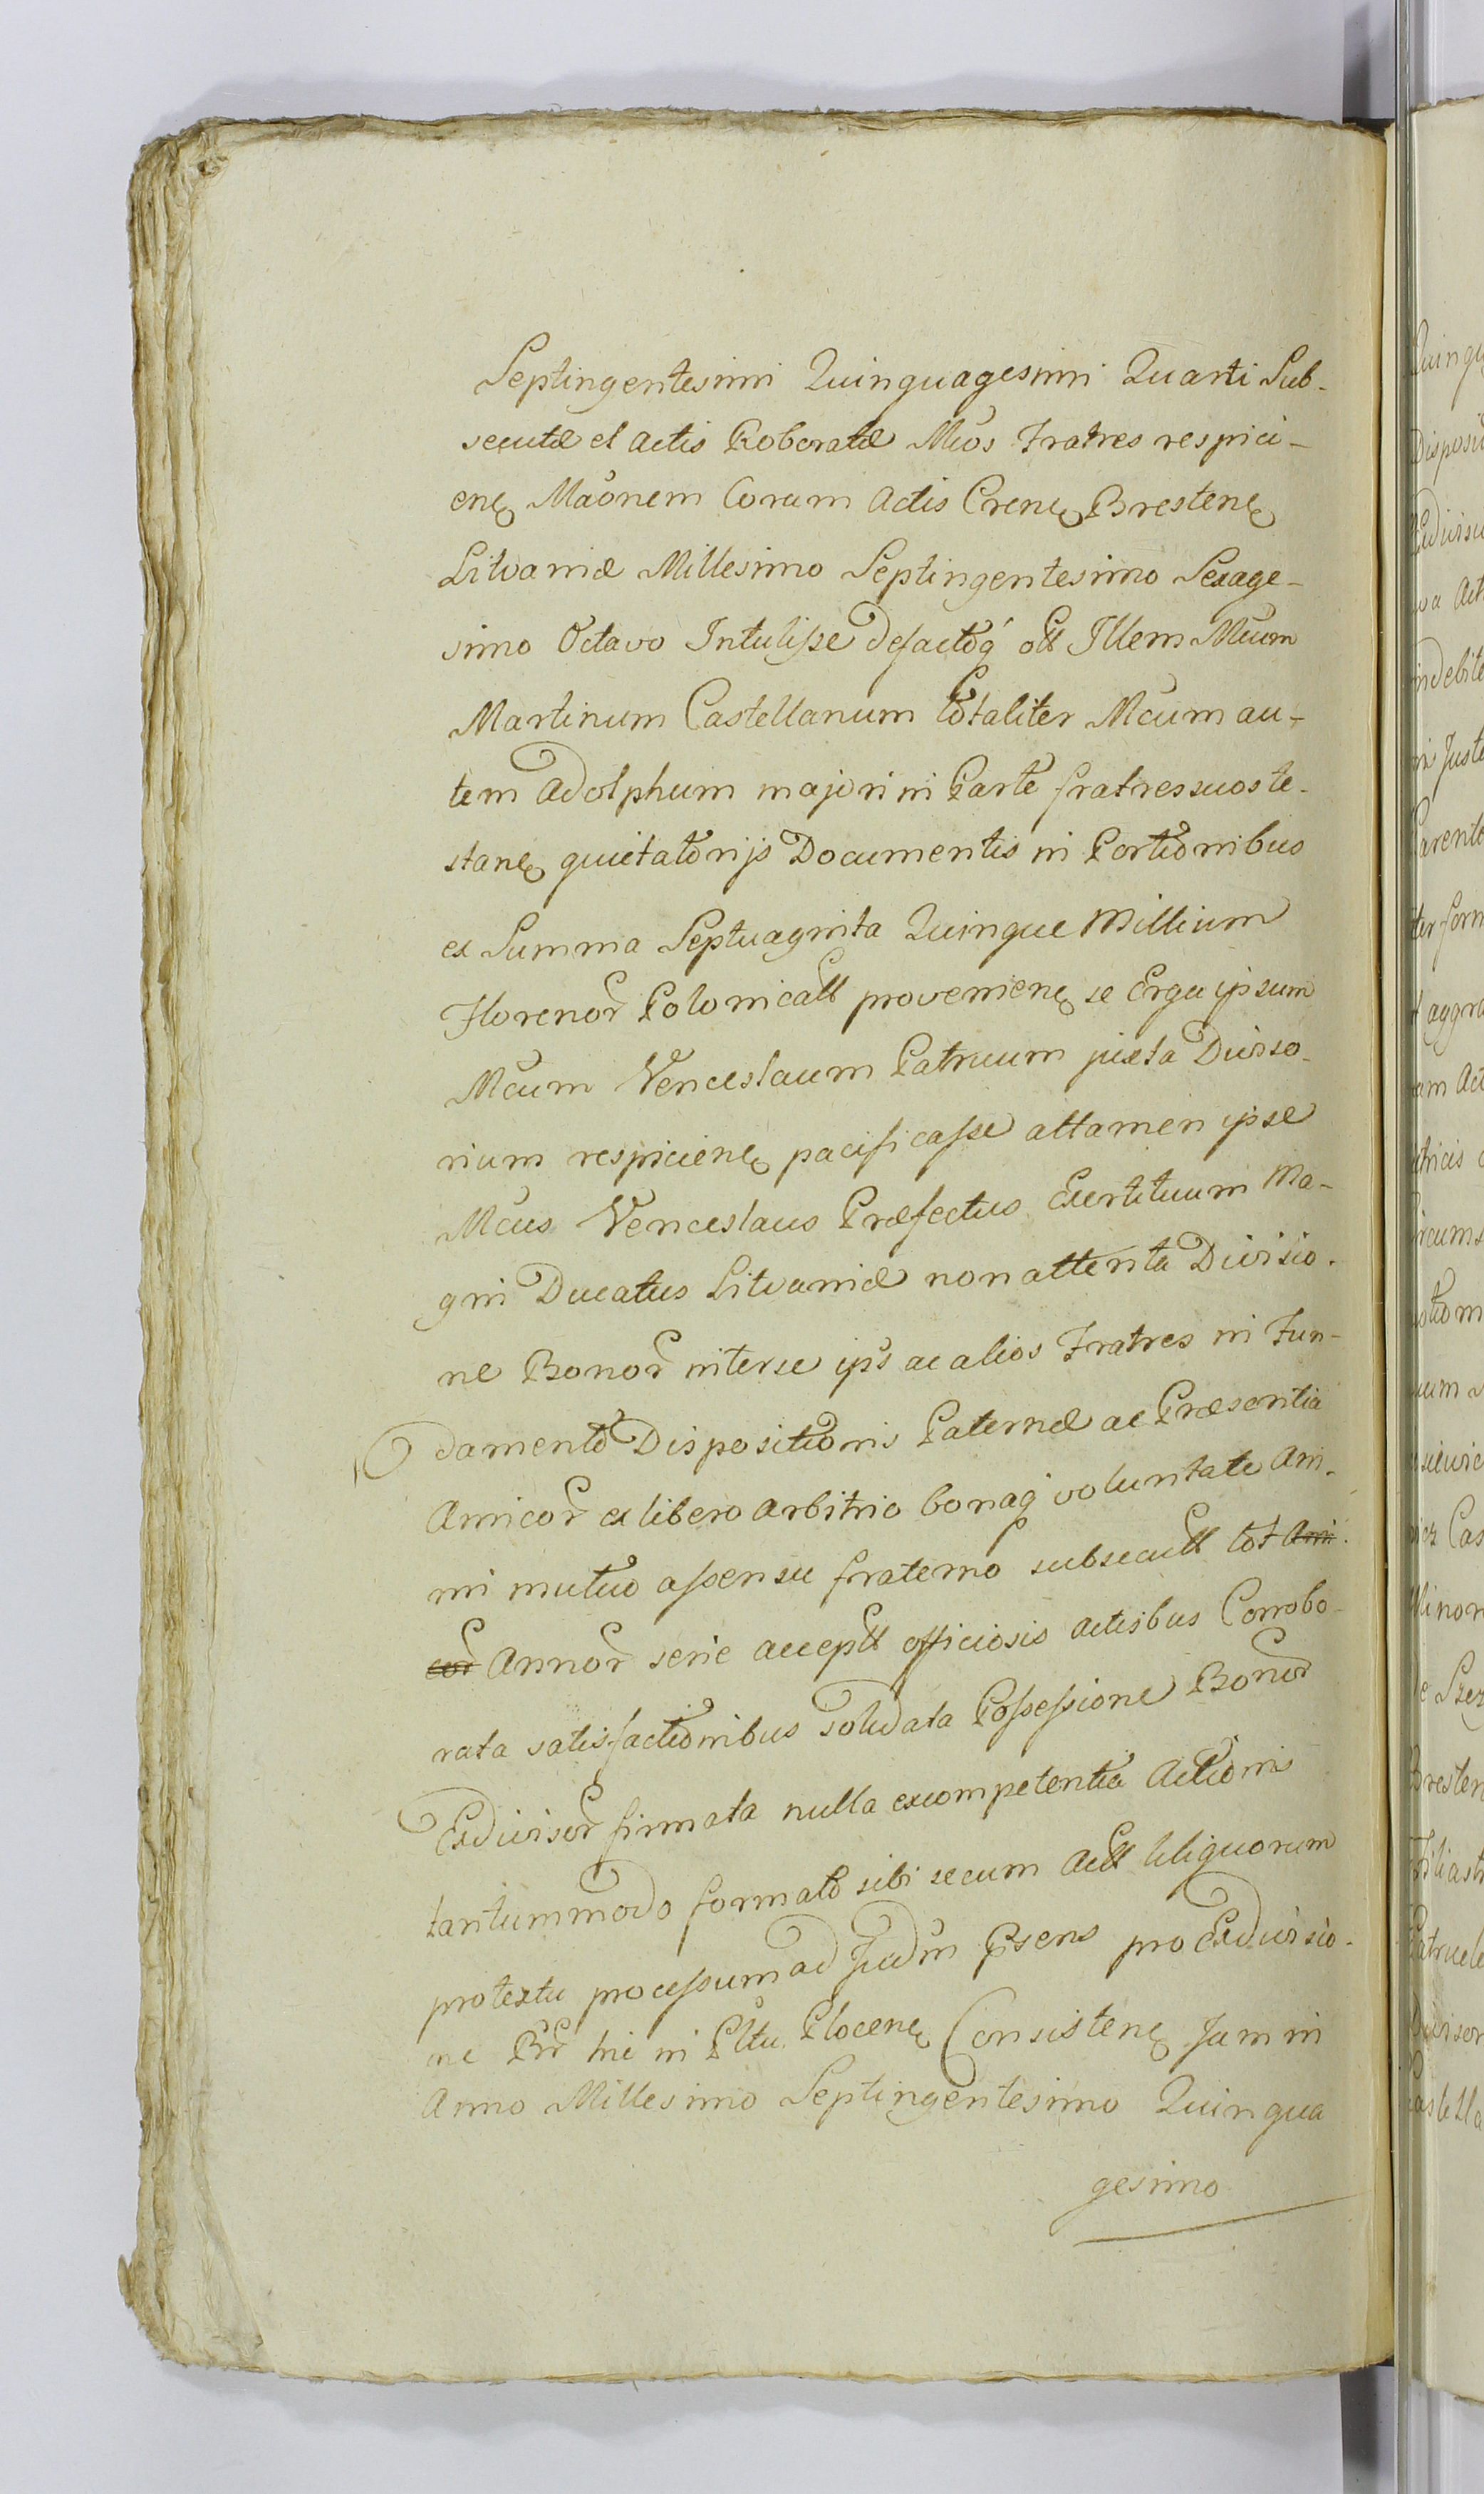 Septingentesimi Quinquagesimi Quarti Sub-
secutæ et actis Roboratæ Mcos Fratres respici-
enꝗ Maõnem Coram Actis Crenꝗ Brestenꝗ
Litvaniæ Millesimo Septingentesimo Sexage-
simo Octavo Intulisse defactoq́ Illem Mcum
Martinum Castellanum totaliter Mcum au-
tem Adolphum majori in Parte fratres suos te-
stanꝗ quietatorijs Documentis in Portionibus
ex Summa Septuaginta Quinque Millium
Florenor Polonicall provenienꝗ se Erga ipsum
Mcum Venceslaum Patruum juxta Diviso-
rium respicienꝗ pacificasse attamen ipse
Mcus Venceslaus Præfectus Exertituum Ma-
gni Ducatus Litvaniæ non attenta Divisio-
ne Bonor inter se ips ac alios Fratres in Fun-
damento Dispositionis Paternæ ac Præsentia
Amicor ex libero arbitrio bonaq́ voluntate Ani-
mi mutuo assensu fraterno subsecutt tot Ami
cor Annor serie accept officiosis actibus Corrobo-
rata satisfactionibus solidata Possessione Bonor
Exdivisor firmata nulla excompetentia Actionis
tantummodo formato sibi secum Act litiquorum
protextu processum ad Judm Psens pro Exdivisio-
ne Br hic in Pltu Plocenꝗ Consistenꝗ Jam in
Anno Millesimo Septingentesimo Quinqua
gesimo